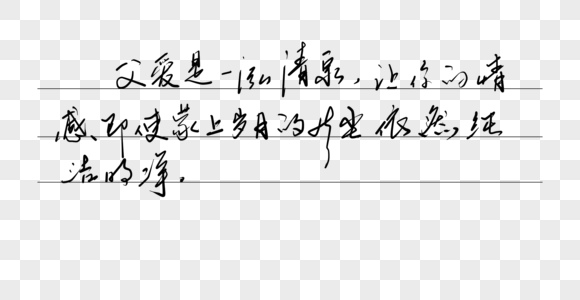 父爱是一泓清泉,让你的情
感、即使蒙上岁月的风尘依然纯
洁明净。